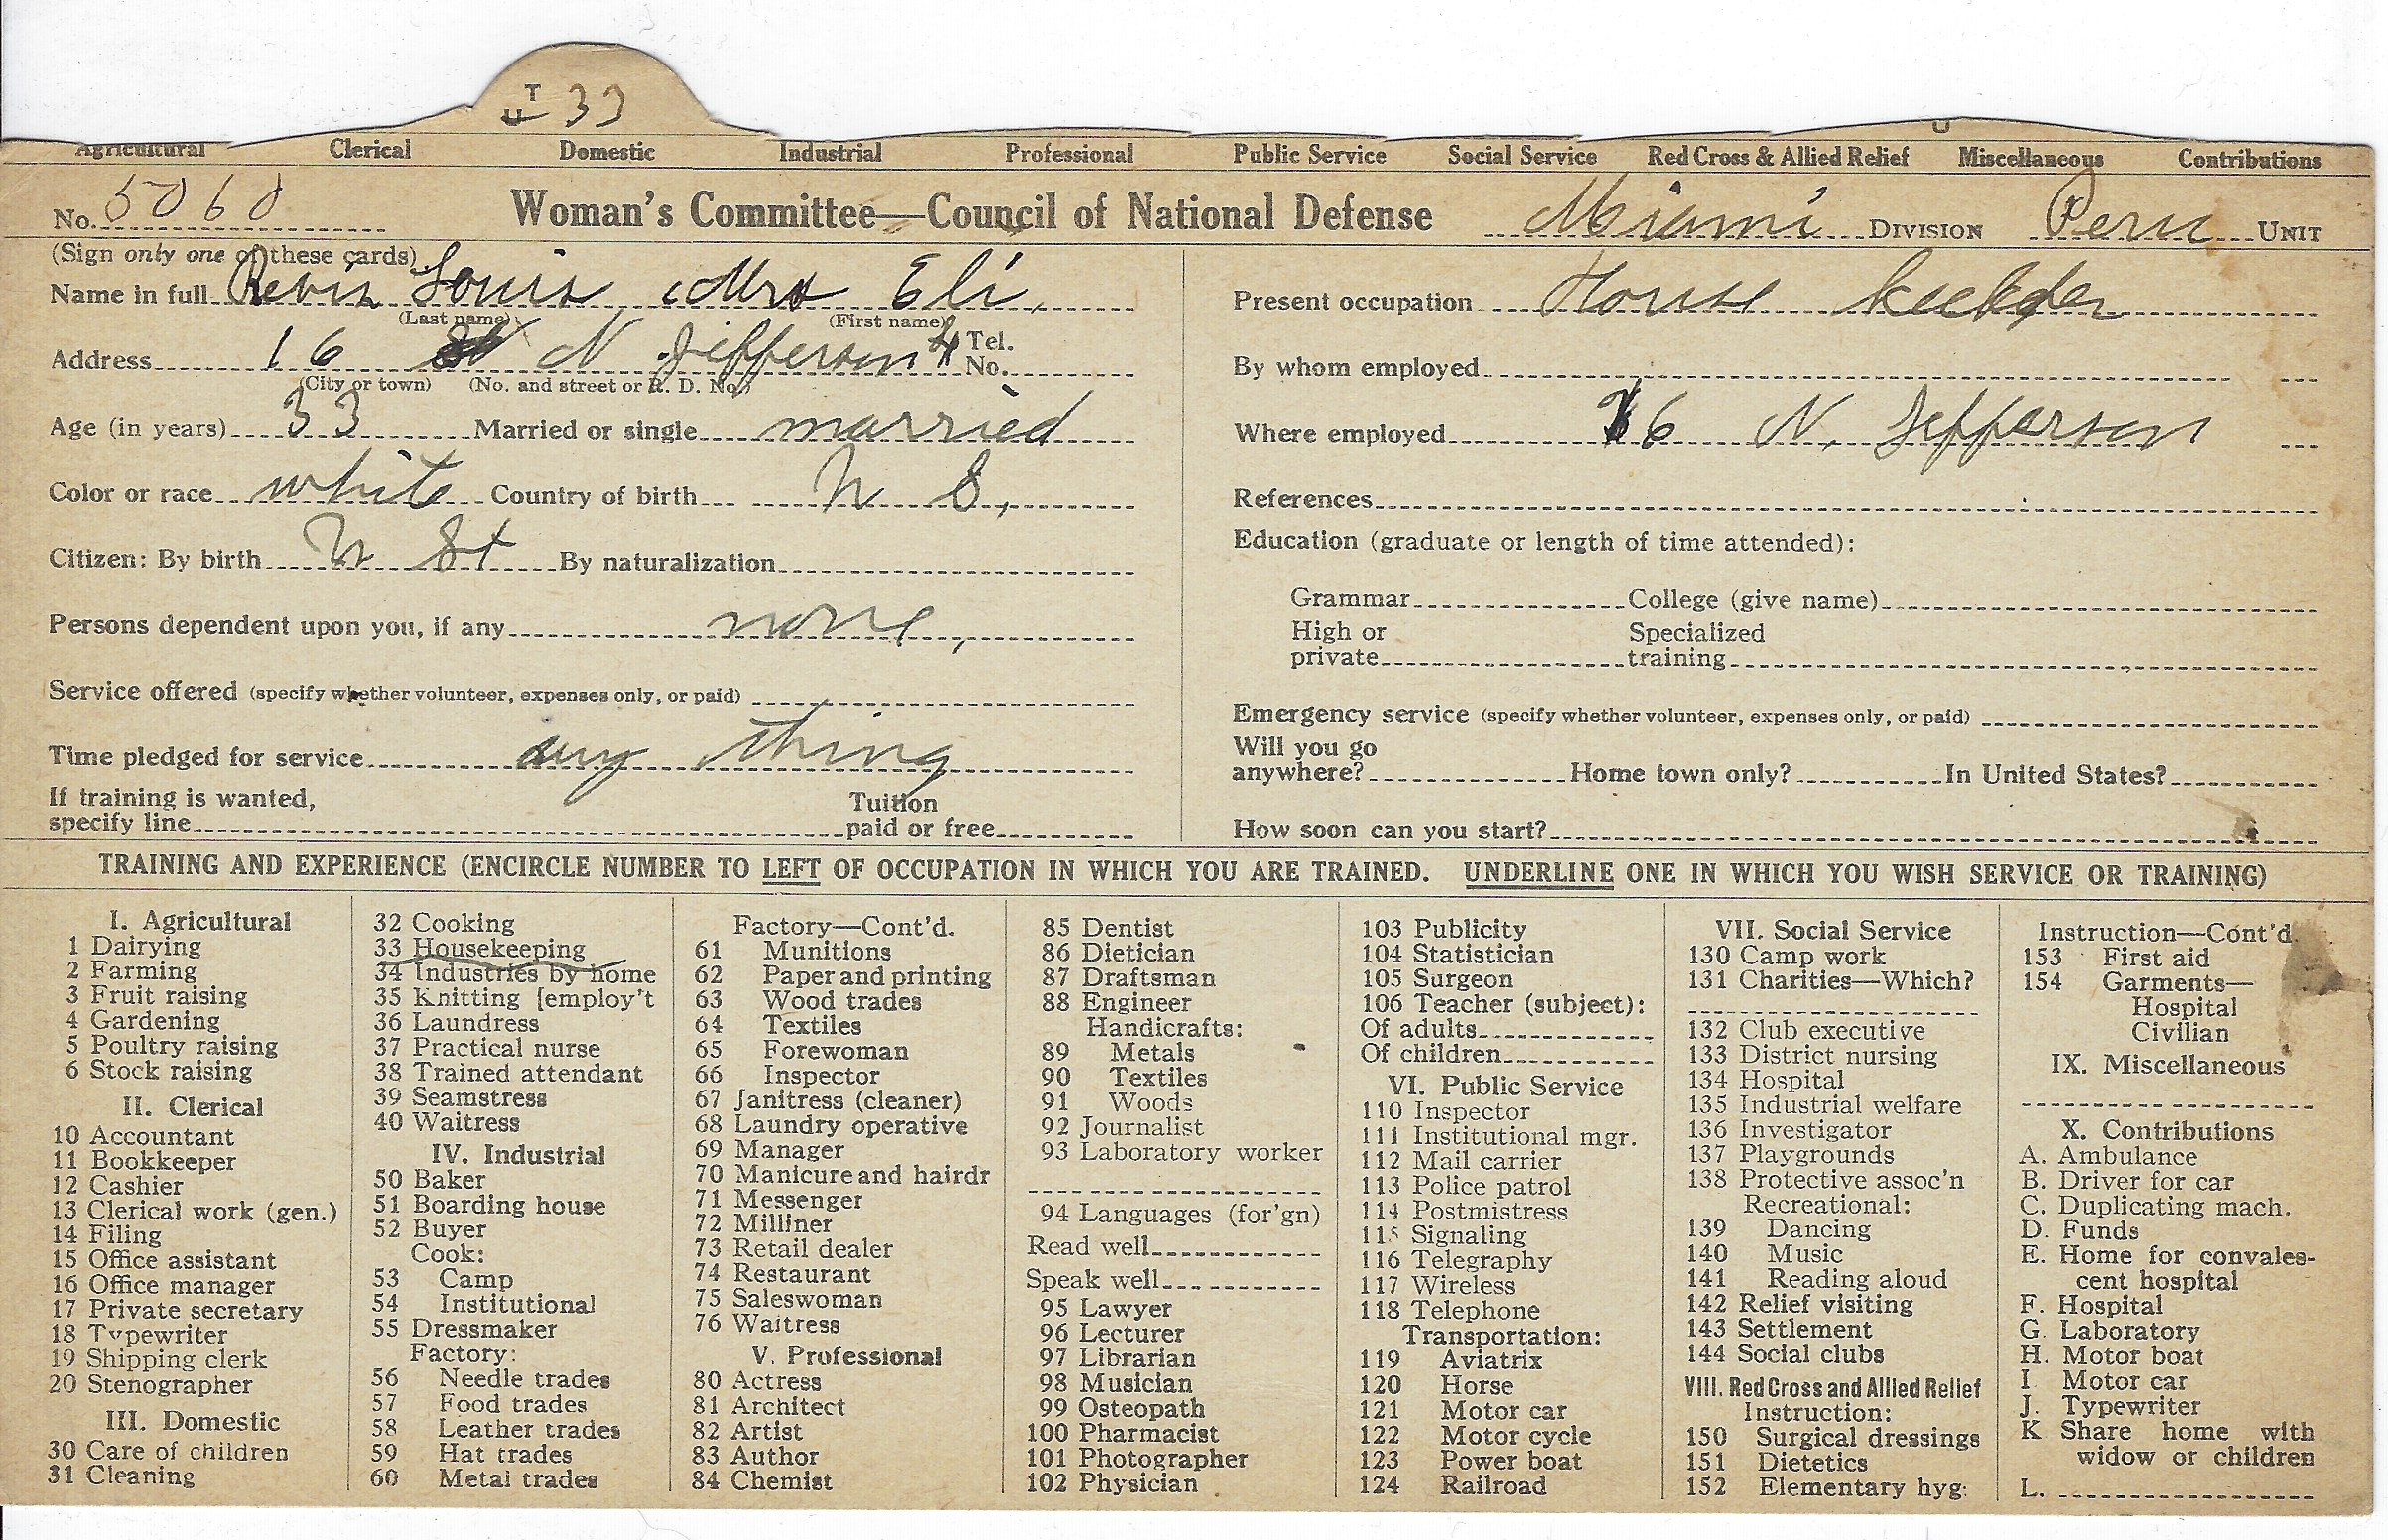 T
U 33
U
Agricultural Clerical Domestic Industrial Professional Public Service Social Service Red Cross & Allied Relief Miscellaneous Contributions
No. 5060 Woman's Committee—Council of National Defense Miami DIVISION Peru UNIT
(Sign only one of these cards)
Name in full Louis Mrs Eli,
(Last name) (First name)
Address 16 N Jefferson Tel. No.
(City or town) (No. and street or R. D. No.)
Age (in years) 33 Married or single married
Color or race white Country of birth U S,
Citizen: By birth U St By naturalization
Persons dependent upon you, if any none,
Service offered (specify whether volunteer, expenses only, or paid)
Time pledged for service any thing
If training is wanted,
specify line Tuition paid or free
Present occupation House keekper
By whom employed
Where employed 16 N. Jefferson
References
Education (graduate or length of time attended):
Grammar College (give name)
High or private Specialized training
Emergency service (specify whether volunteer, expenses only, or paid)
Will you go
anywhere? Home town only? In United States?
How soon can you start?
TRAINING AND EXPERIENCE (ENCIRCLE NUMBER TO LEFT OF OCCUPATION IN WHICH YOU ARE TRAINED. UNDERLINE ONE IN WHICH YOU WISH SERVICE OR TRAINING)
I. Agricultural
1 Dairying
2 Farming
3 Fruit raising
4 Gardening
5 Poultry raising
6 Stock raising
II. Clerical
10 Accountant
11 Bookkeeper
12 Cashier
13 Clerical work (gen.)
14 Filing
15 Office assistant
16 Office manager
17 Private secretary
18 Typewriter
19 Shipping clerk
20 Stenographer
III. Domestic
30 Care of children
31 Cleaning
32 Cooking
33 Housekeeping
34 Industries by home
35 Knitting [employ't
36 Laundress
37 Practical nurse
38 Trained attendant
39 Seamstress
40 Waitress
IV. Industrial
50 Baker
51 Boarding house
52 Buyer
Cook:
53 Camp
54 Institutional
55 Dressmaker
Factory:
56 Needle trades
57 Food trades
58 Leather trades
59 Hat trades
60 Metal trades
Factory—Cont'd.
61 Munitions
62 Paper and printing
63 Wood trades
64 Textiles
65 Forewoman
66 Inspector
67 Janitress (cleaner)
68 Laundry operative
69 Manager
70 Manicure and hairdr
71 Messenger
72 Milliner
73 Retail dealer
74 Restaurant
75 Saleswoman
76 Waitress
V. Professional
80 Actress
81 Architect
82 Artist
83 Author
84 Chemist
85 Dentist
86 Dietician
87 Draftsman
88 Engineer
Handicrafts:
89 Metals
90 Textiles
91 Woods
92 Journalist
93 Laboratory worker
94 Languages (for'gn)
Read well
Speak well
95 Lawyer
96 Lecturer
97 Librarian
98 Musician
99 Osteopath
100 Pharmacist
101 Photographer
102 Physician
103 Publicity
104 Statistician
105 Surgeon
106 Teacher (subject):
Of adults
Of children
VI. Public Service
110 Inspector
111 Institutional mgr.
112 Mail carrier
113 Police patrol
114 Postmistress
115 Signaling
116 Telegraphy
117 Wireless
118 Telephone
Transportation:
119 Aviatrix
120 Horse
121 Motor car
122 Motor cycle
123 Power boat
124 Railroad
VII. Social Service
130 Camp work
131 Charities—Which?
132 Club executive
133 District nursing
134 Hospital
135 Industrial welfare
136 Investigator
137 Playgrounds
138 Protective assoc'n
Recreational:
139 Dancing
140 Music
141 Reading aloud
142 Relief visiting
143 Settlement
144 Social clubs
VIII. Red Cross and Allied Relief
Instruction:
150 Surgical dressings
151 Dietetics
152 Elementary hyg.
Instruction—Cont'd.
153 First aid
154 Garments—
Hospital
Civilian
IX. Miscellaneous
X. Contributions
A. Ambulance
B. Driver for car
C. Duplicating mach.
D. Funds
E. Home for convales-
cent hospital
F. Hospital
G. Laboratory
H. Motor boat
I. Motor car
J. Typewriter
K Share home with
widow or children
L.